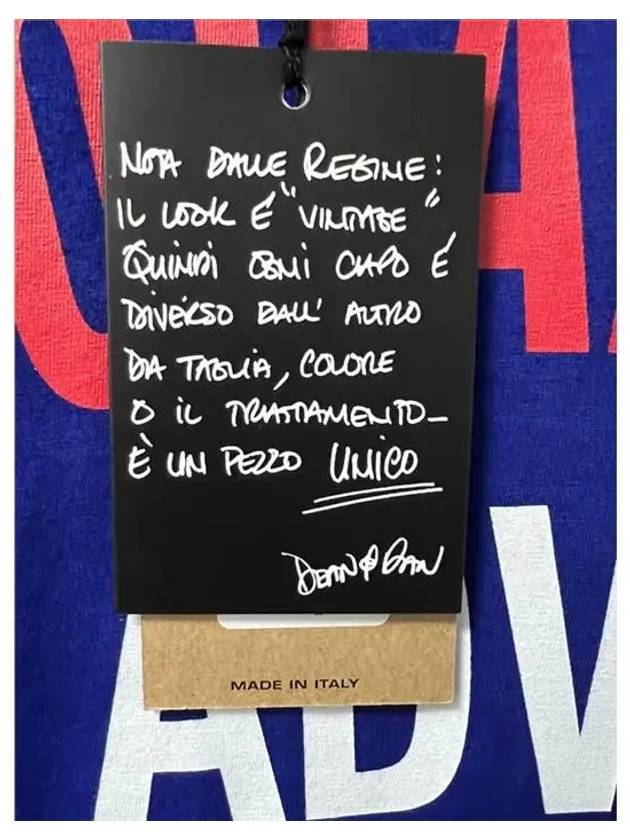 NOTA DALLE REGINE:
IL LOOK É "VINTAGE"
QUINDI OGNI CAPO É
DIVERSO DALL' ALTRO
DA TAGLIA, COLORE
O IL TRATTAMENTO_
È UN PEZZO UNICO
DEAN & DAN
MADE IN ITALY
ADV